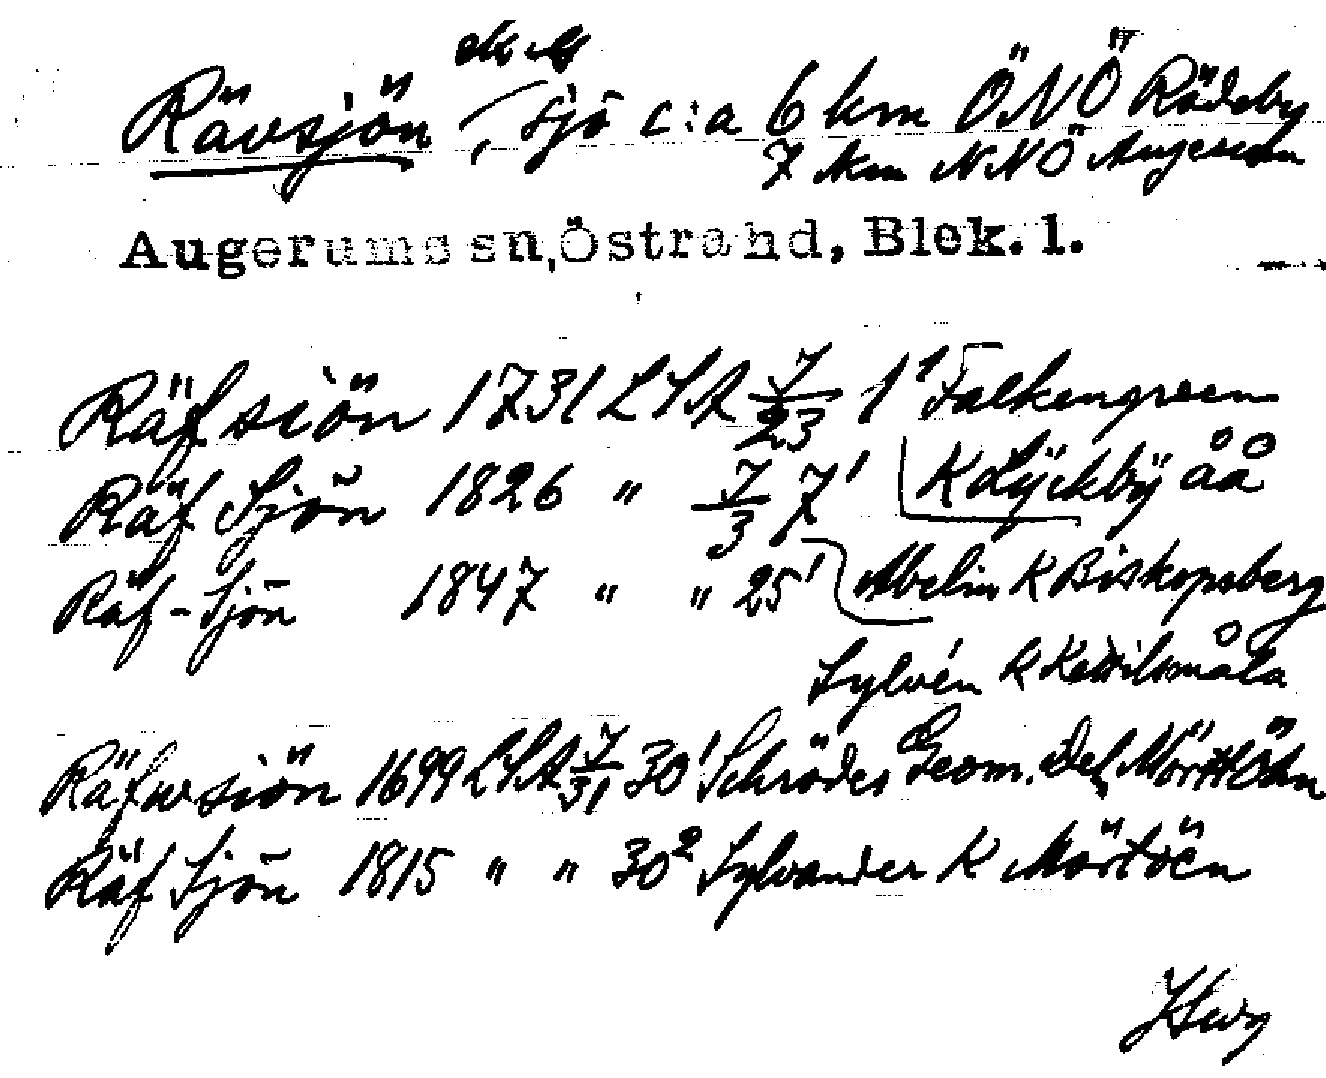 ek bl
Rävsjön, sjö c:a 6 km ÖNÖ Rödeby
7 km NNÖ Augerum
Augerums sn, Östra hd, Blek. l.
Räfsiön 1731 LSA 7/23 1¹ Falkengreen
K Lÿckbÿ åå
Räf Sjön 1826 " 7/3 7'
Räf-Sjön 1847 " " 25' Abelin K Biskopsberg
Sylvén K Kettilsmåla
Räfwsiön 1699 LSA 7/31 30' Schröder Geom. Del. Mörttöen
Räf Sjön 1815 " " 30² Sylvander K Mörtöen